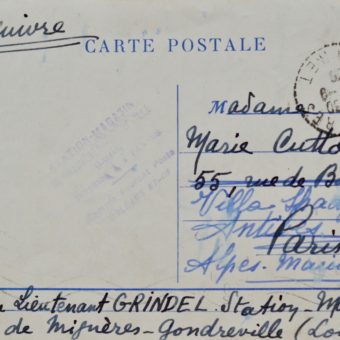 uivre
CARTE POSTALE
TION-MAGASIN
Madame
Marie Cutto
55, rue de B
Villa Shad
Antibes
Paris
Alpes-Mari
Lieutenant GRINDEL. Station-M
de Mignères-Gondreville (Lo